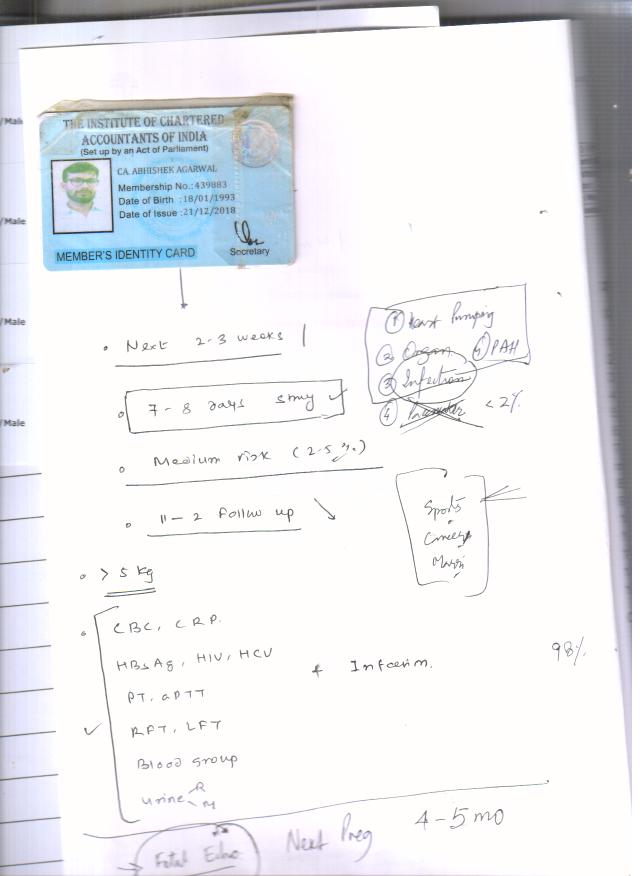 /Male
/Male
/Male
/Male
THE INSTITUTE OF CHARTERED
ACCOUNTANTS OF INDIA
(Set up by an Act of Parliament)
CA. ABHISHEK AGARWAL
Membership No.:439883
Date of Birth :18/01/1993
Date of Issue :21/12/2018
Secretary
MEMBER'S IDENTITY CARD
Next 2-3 weeks
① Heart Pumping
② Organ ④ PAH
③ Infection
④ < 2%
7-8 days stay ✓
Medium risk (2-5%)
11-2 Follow up
Sports
Career
> 5 kg
CBC, CRP.
HBsAg, HIV, HCV
+
98%
PT, aPTT
✓ RFT, LFT
Blood group
Urine R
M
4-5 mo
Next Preg
→ Fetal Echo